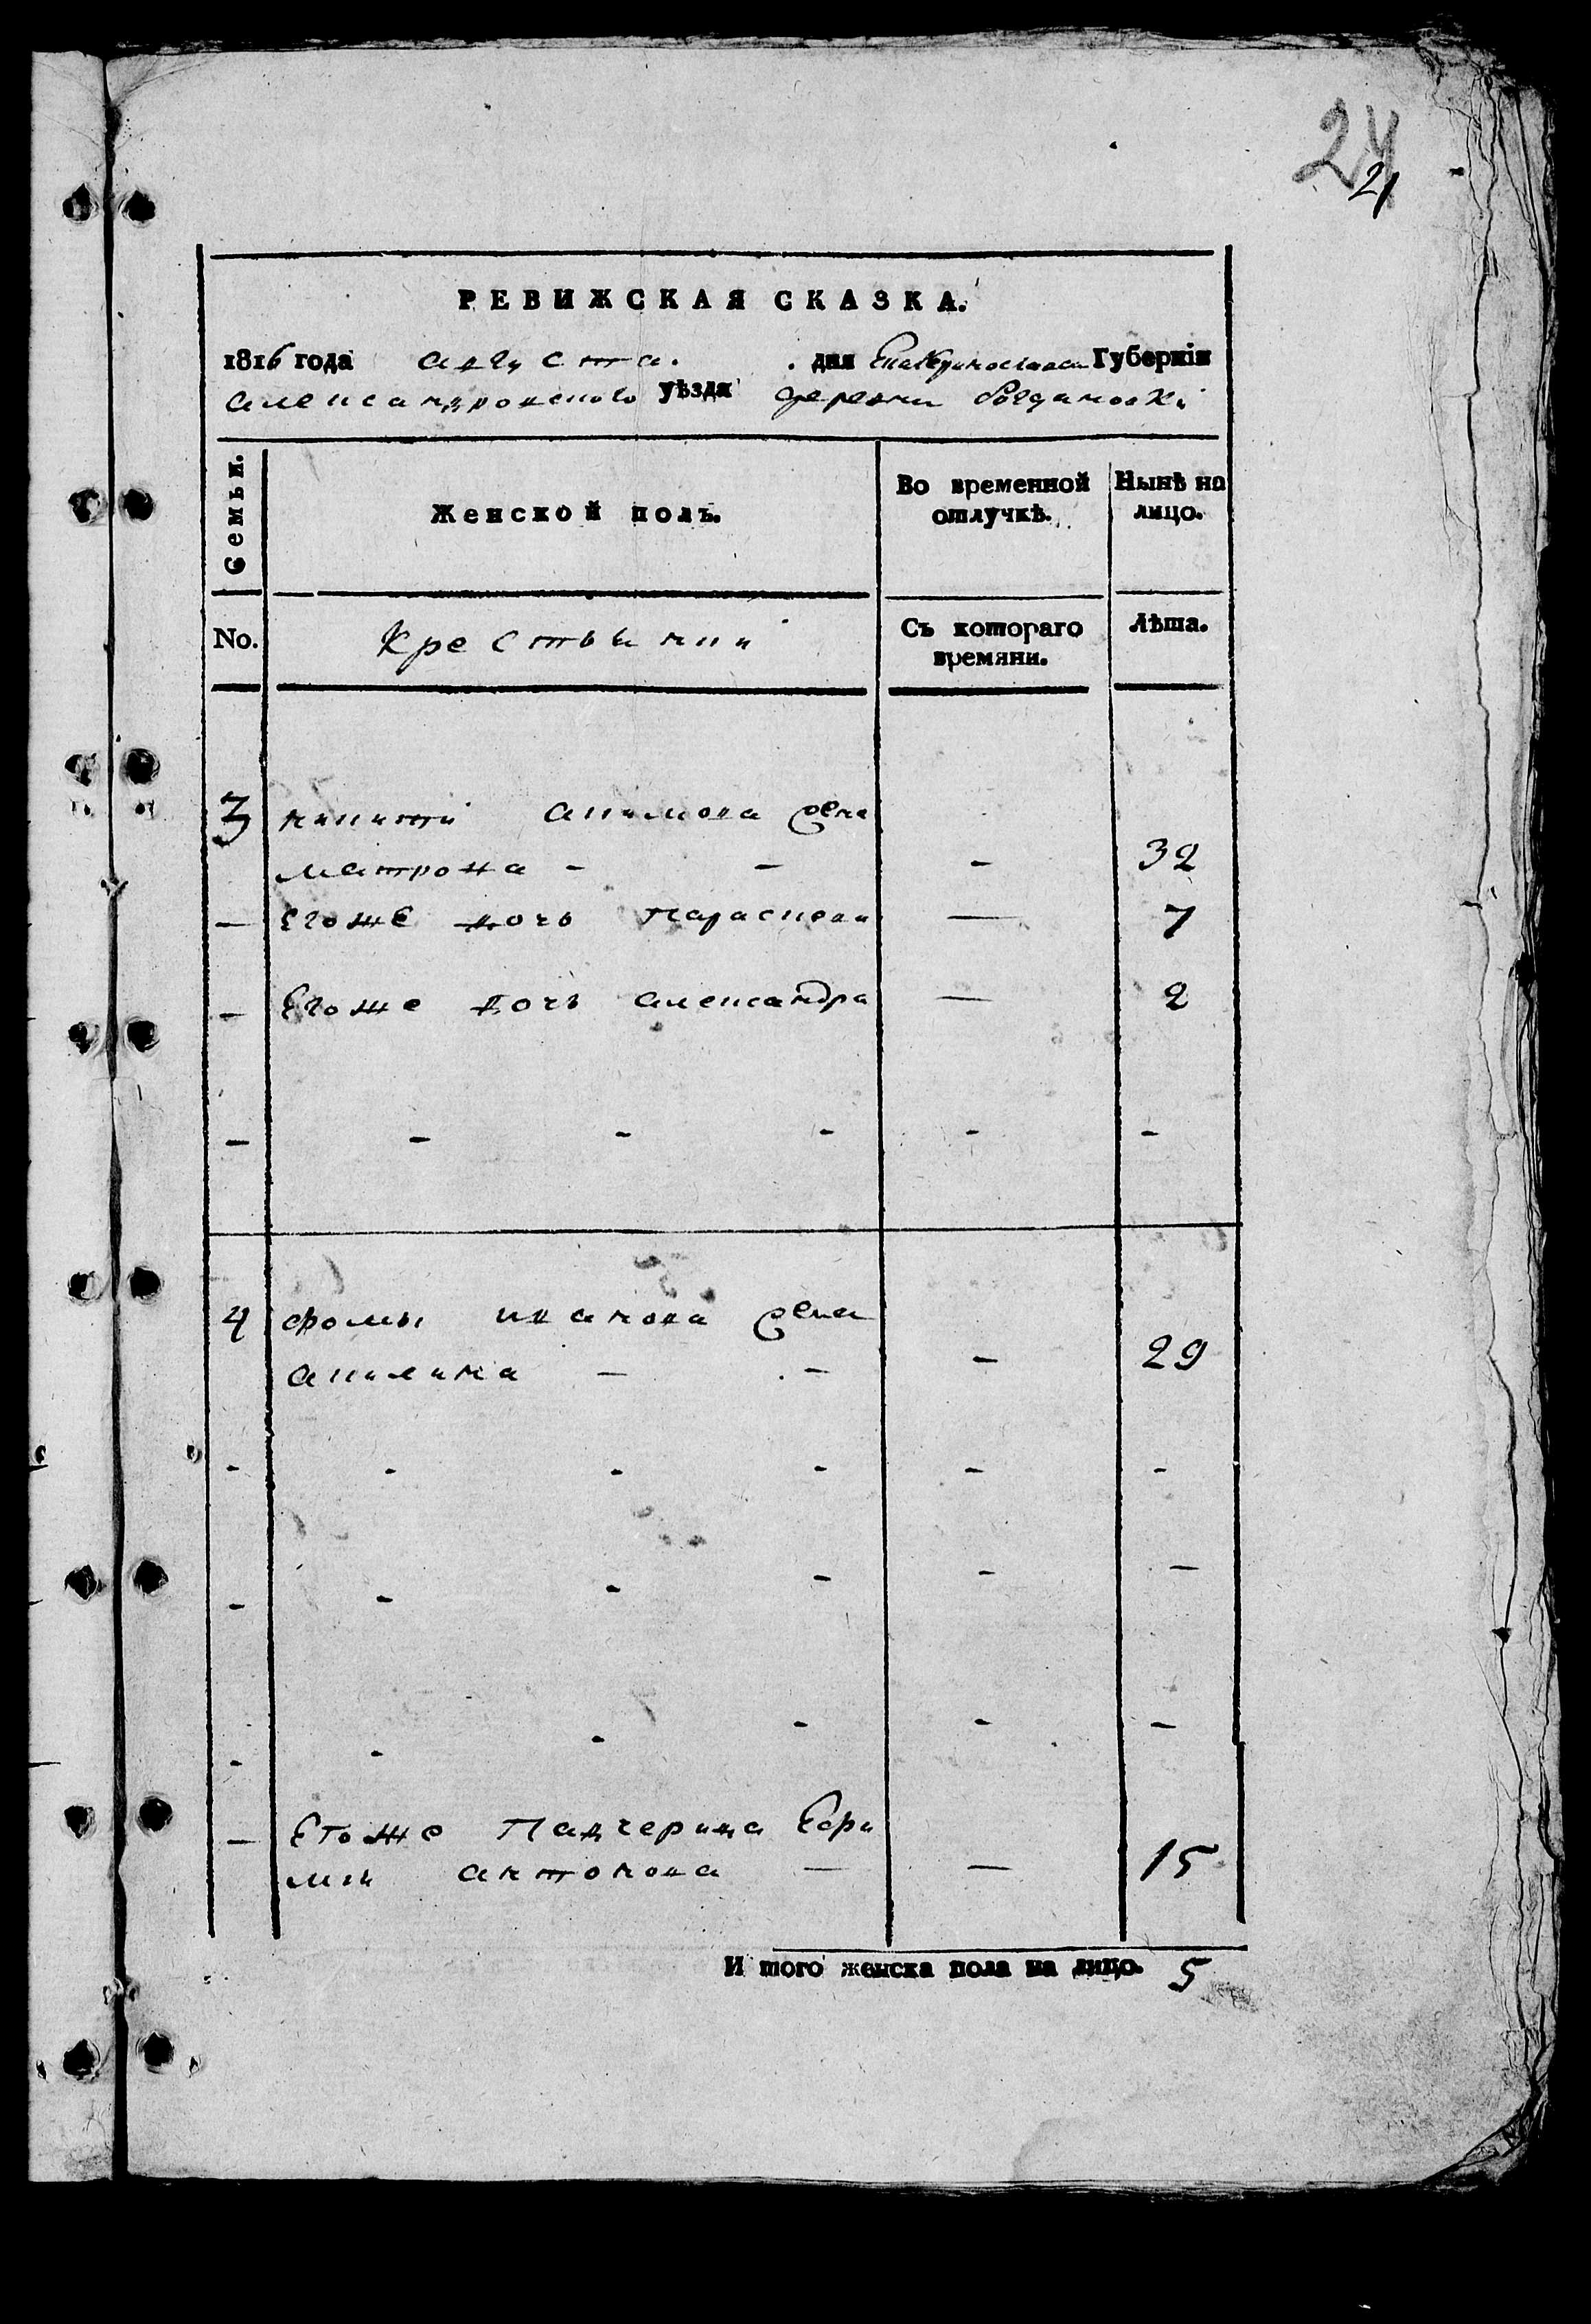 24
21
РЕВИЖСКАЯ СКАЗКА.
1816 года августа . дня Екатеринославской Губерніи
александровского уѣзда деревни богдановки
Семьи.
Женской полъ.
Во временной отлучкѣ.
Нынѣ на лицо.
No.
Крестьянии
Съ котораго времяни.
Лѣта.
3 никиты акимова жена
матрона - - - 32
— Егоже дочь параскева — 7
— Егоже дочь александра — 2
- - - - - -
4 фомы иванова жена
акилина — - - 29
- - - - - -
- - - - - -
- - - - - -
— Егоже Падчерица Ефи
мия антонова — — 15
И того женска пола на лицо. 5